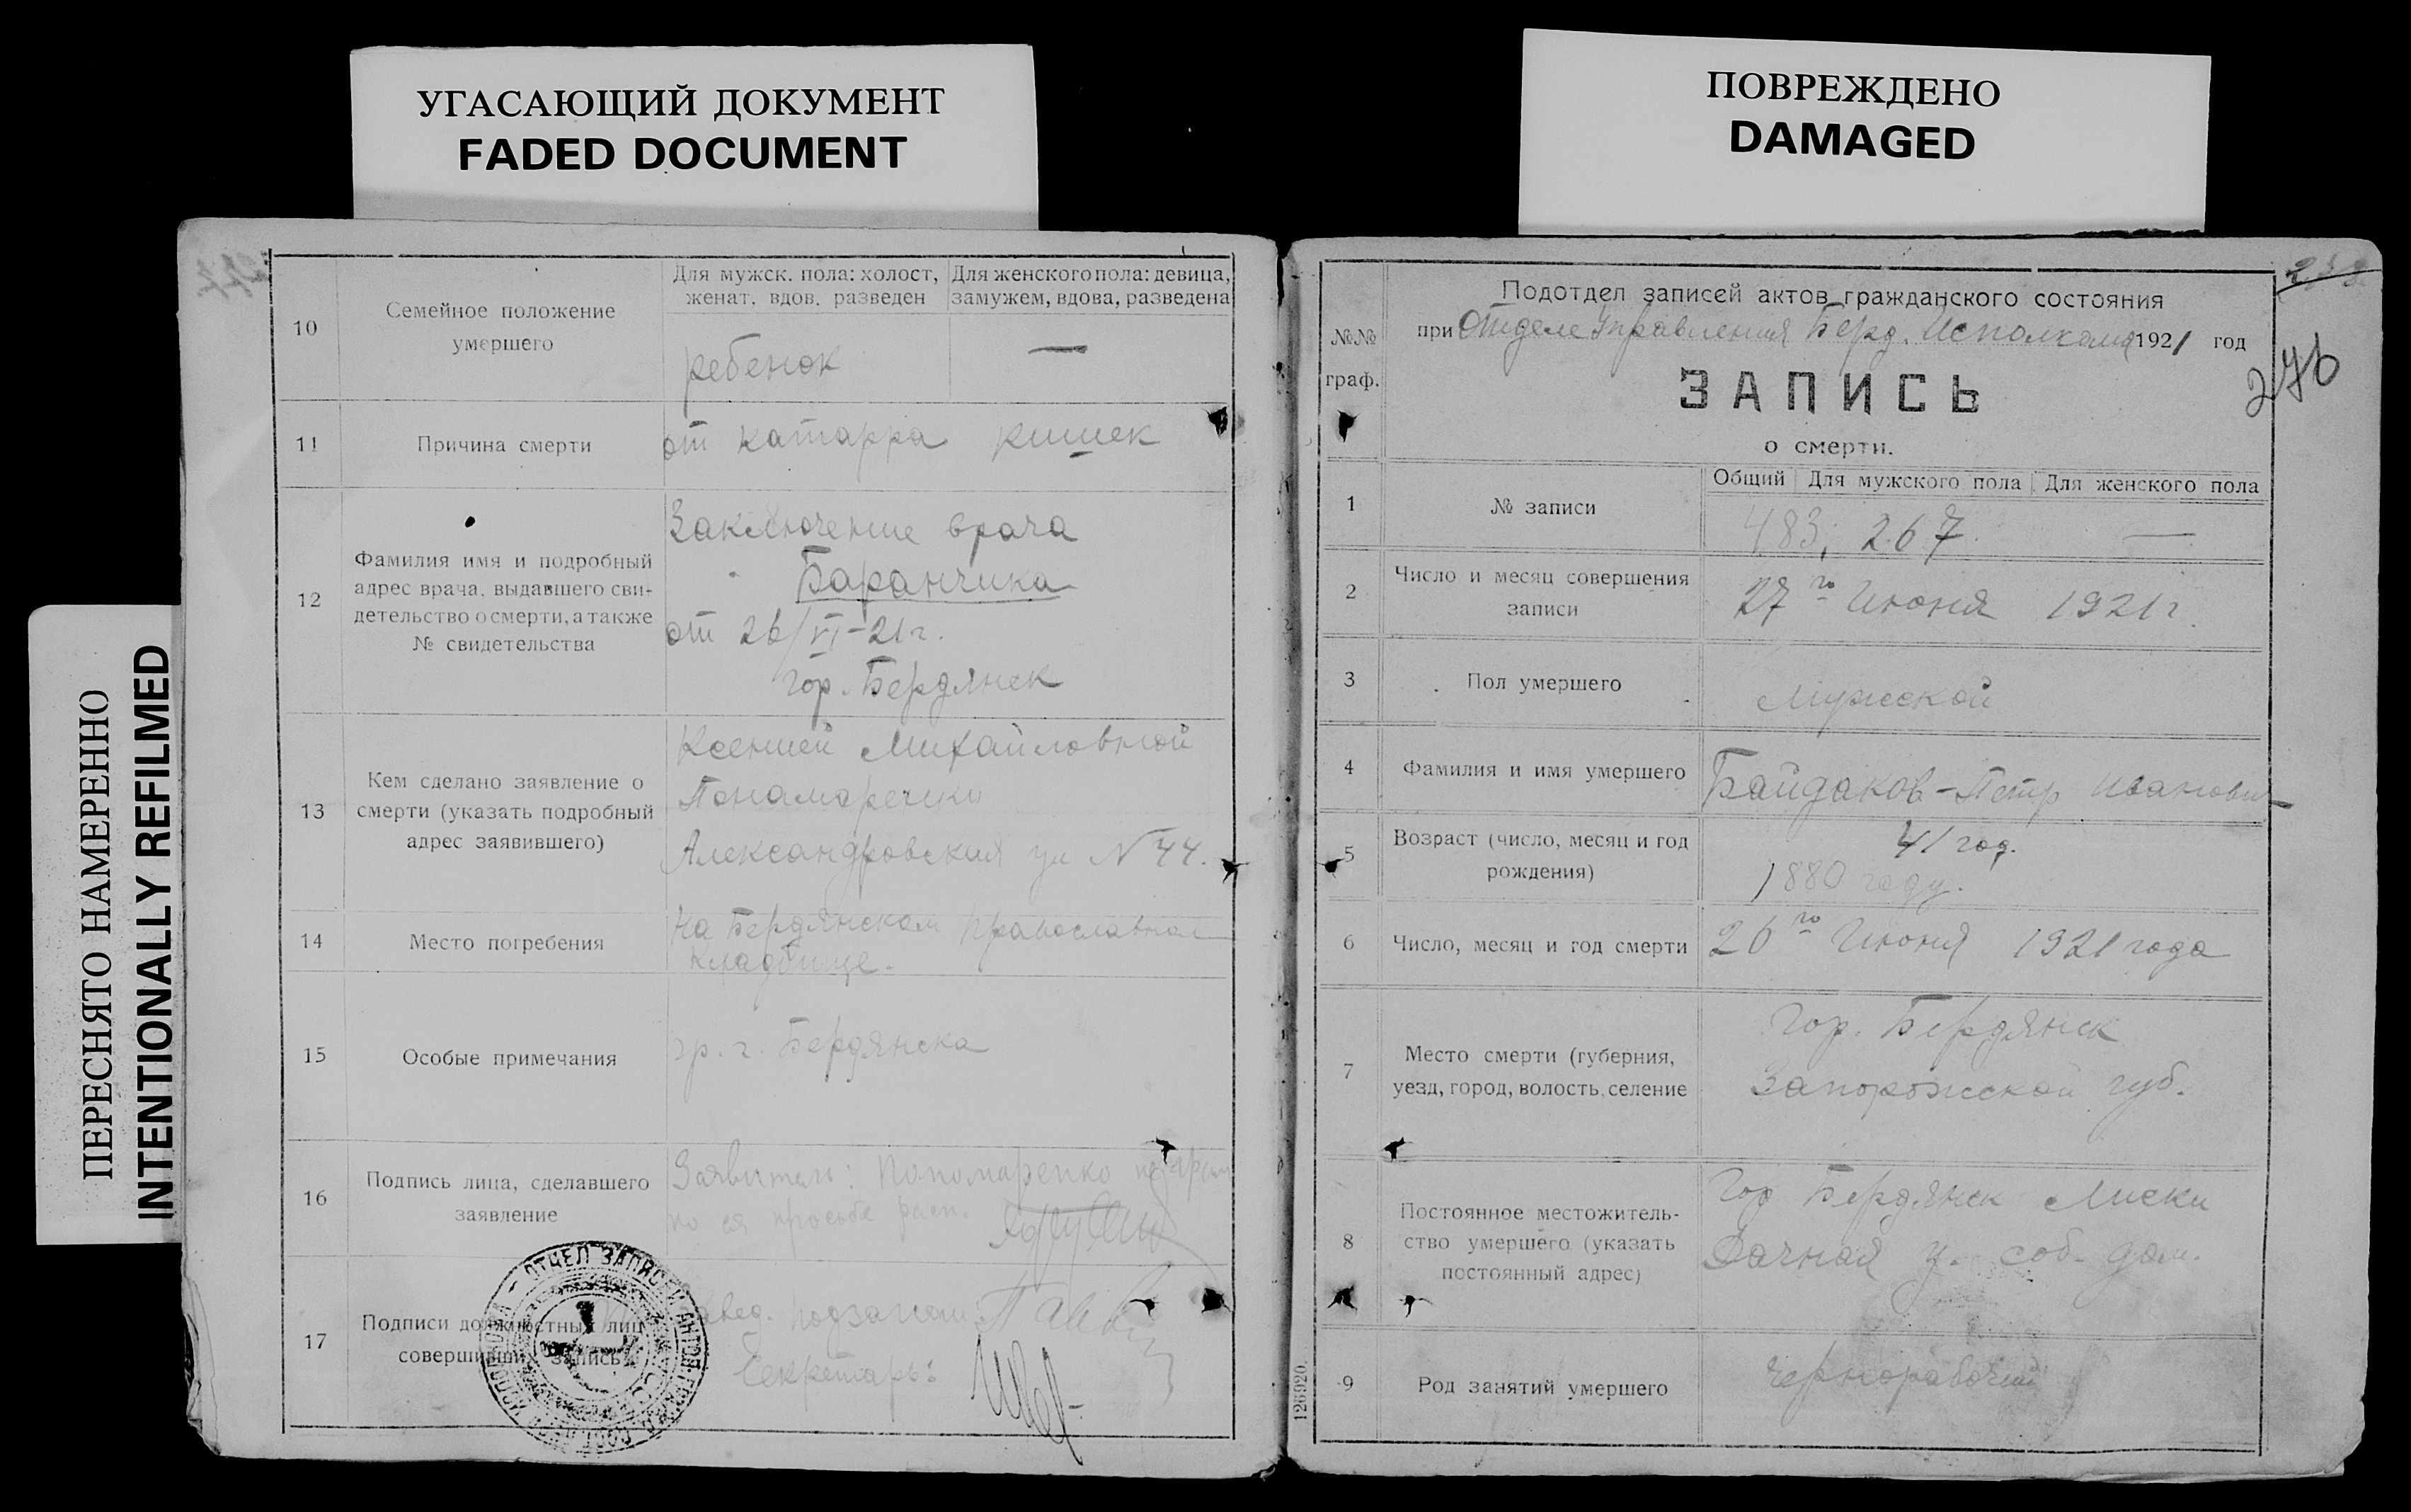 УГАСАЮЩИЙ ДОКУМЕНТ
FADED DOCUMENT
ПОВРЕЖДЕНО
DAMAGED
ПЕРЕСНЯТО НАМЕРЕННО
INTENTIONALLY REFILMED
10
Семейное положение
умершего
Для мужск. пола: холост,
женат, вдов, разведен
Для женского пола: девица,
замужем, вдова, разведена
ребенок
—
11
Причина смерти
от катарра кишек
12
Фамилия имя и подробный
адрес врача, выдавшего сви-
детельство о смерти, а также
№ свидетельства
Заключение врача
Баранчика
от 26/VI-21г.
гор. Бердянск
13
Кем сделано заявление о
смерти (указать подробный
адрес заявившего)
Ксенией Михайловной
Александровская ул N 44.
14
Место погребения
На Бердянском православном
кладбище.
15
Особые примечания
гр. г. Бердянска
16
Подпись лица, сделавшего
заявление
Заявитель: Пономаренко
по ея просьбе расп.
17
Подписи должностных лиц
совершивших запись
Завед. подзагсом
Секретарь:
239
276
№№
граф.
Подотдел записей актов гражданского состояния
при Отделе Управления Берд. Исполкома 1921 год
ЗАПИСЬ
о смерти.
1
№ записи
Общий
Для мужского пола
Для женского пола
483; 267. —
2
Число и месяц совершения
записи
27го Июня 1921г.
3
Пол умершего
Мужской
4
Фамилия и имя умершего
Байдаков - Петр Иванович
5
Возраст (число, месяц и год
рождения)
41 год.
1880 году.
6
Число, месяц и год смерти
26го Июня 1921 года
7
Место смерти (губерния,
уезд, город, волость, селение
Гор. Бердянск
Запорожской губ.
8
Постоянное местожитель-
ство умершего (указать
постоянный адрес)
Гор Бердянск Лиски
Дачная у. соб. дом.
9
Род занятий умершего
Чернорабочий
126920.